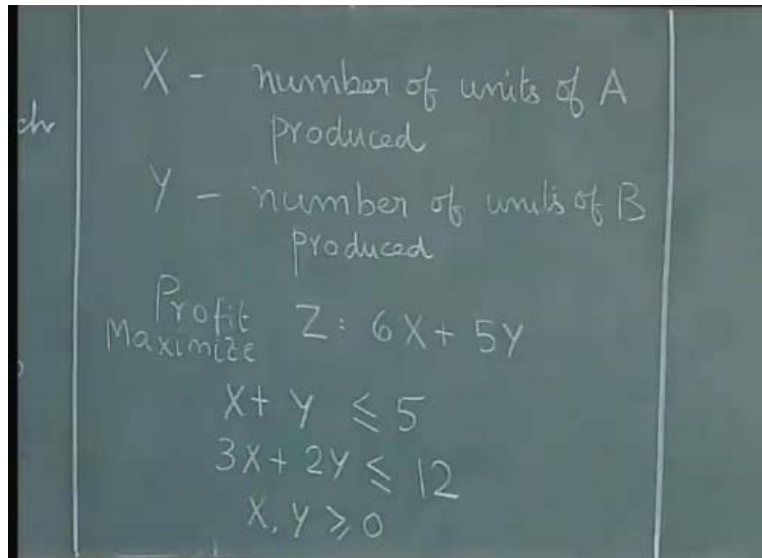 ch
X - number of units of A
produced
Y - number of units of B
produced
Profit
Maximize Z : 6X + 5Y
X + Y ≤ 5
3X + 2Y ≤ 12
X, Y ≥ 0